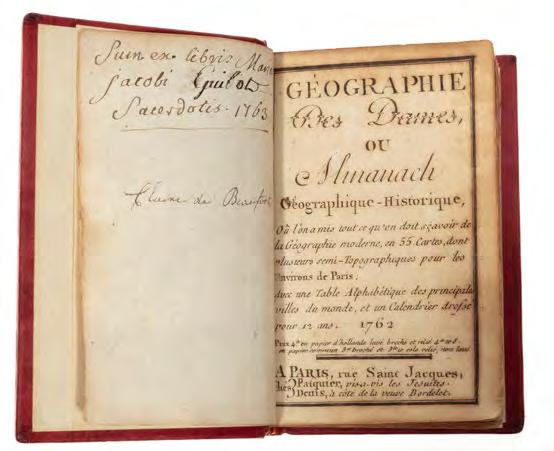 Sum ex libris
Jacobi Guibot
Sacerdotis. 1763
Claire de Beaufort
GÉOGRAPHIE
Des Dames,
OU
Almanach
Géographique-Historique,
Où l'on a mis tout ce qu'on doit sçavoir de
la Géographie moderne, en 55 Cartes, dont
plusieurs semi-Topographiques pour les
Environs de Paris.
Avec une Table Alphabétique des principales
villes du monde, et un Calendrier dressé
pour 12 ans. 1762
Prix en papier d'hollande lavé broché et relié
en papier commun broché et relié
A PARIS, rue Saint Jacques,
Chés Pasquier, vis a vis les Jesuites.
Denis, à côté de la veuve Bordelet.